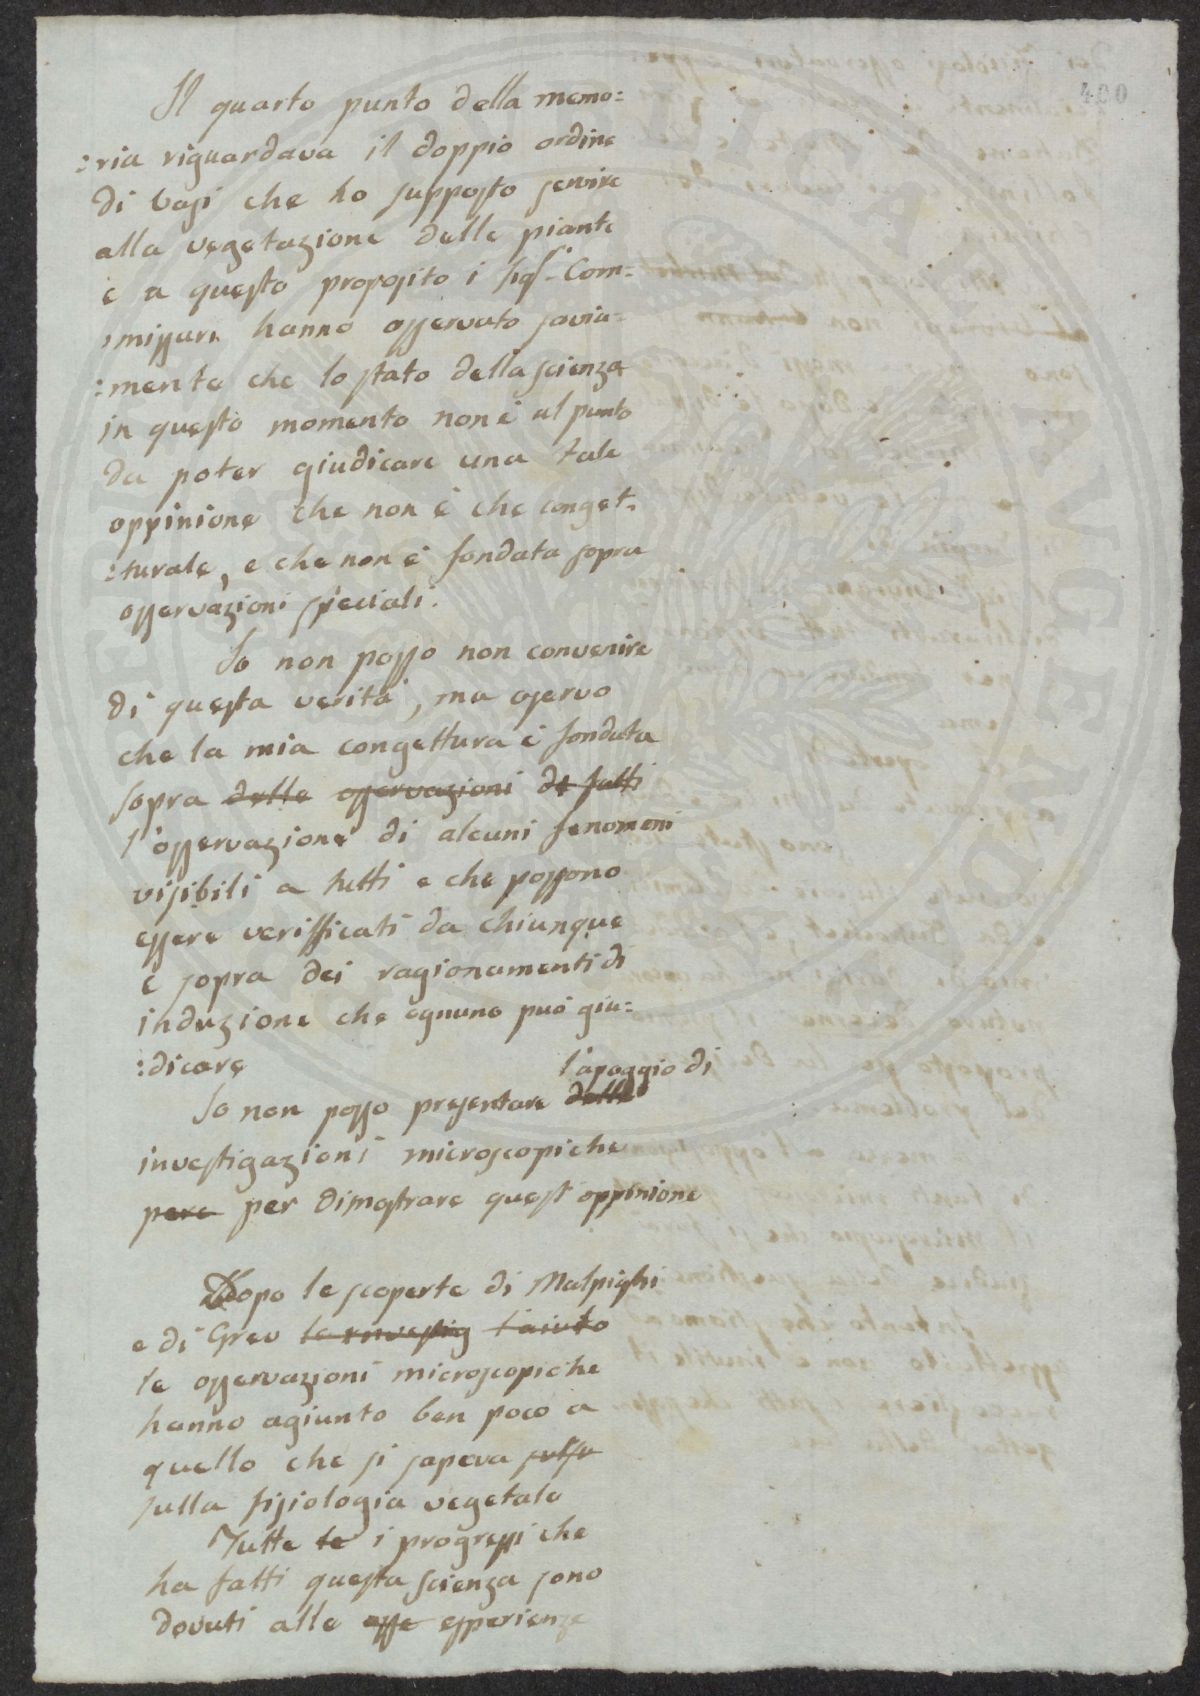 400
Il quarto punto della memo:
:ria riguardava il doppio ordine
di vasi che ho supposto servire
alla vegetazione delle piante
e a questo proposito i sig.ri Com=
:missari hanno osservato savia=
:mente che lo stato della scienza
in questo momento non è al punto
da poter giudicare una tale
oppinione che non è che conget:
:turale, e che non è fondata sopra
osservazioni speciali.
Io non posso non convenire
di questa verità, ma oservo
che la mia congettura è fondata
sopra delle osservazioni di fatti
l'osservazione di alcuni fenomeni
visibili a tutti e che possono
essere verifficati da chiunque
e sopra dei ragionamenti di
induzione che ognuno può giu:
:dicare
l'apoggio di
Io non posso presentare delle
investigazioni microscopiche
pere per dimostrare quest'oppinione
Dopo le scoperte di Malpighi
e di Greu le investig l'aiuto
le osservazioni microscopiche
hanno agiunto ben poco a
quello che si sapeva
sulla fisiologia vegetale
Tutte le i progressi che
ha fatti questa scienza sono
dovuti alle osse esperienze